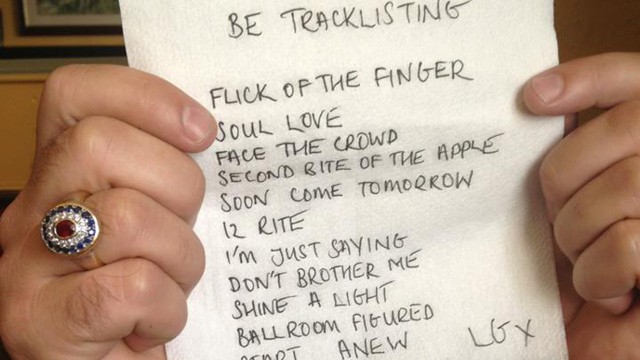 BE TRACKLISTING
FLICK OF THE FINGER
SOUL LOVE
FACE THE CROWD
SECOND BITE OF THE APPLE
SOON COME TOMORROW
IZ RITE
I'M JUST SAYING
DON'T BROTHER ME
SHINE A LIGHT
BALLROOM FIGURED
START ANEW
LG X